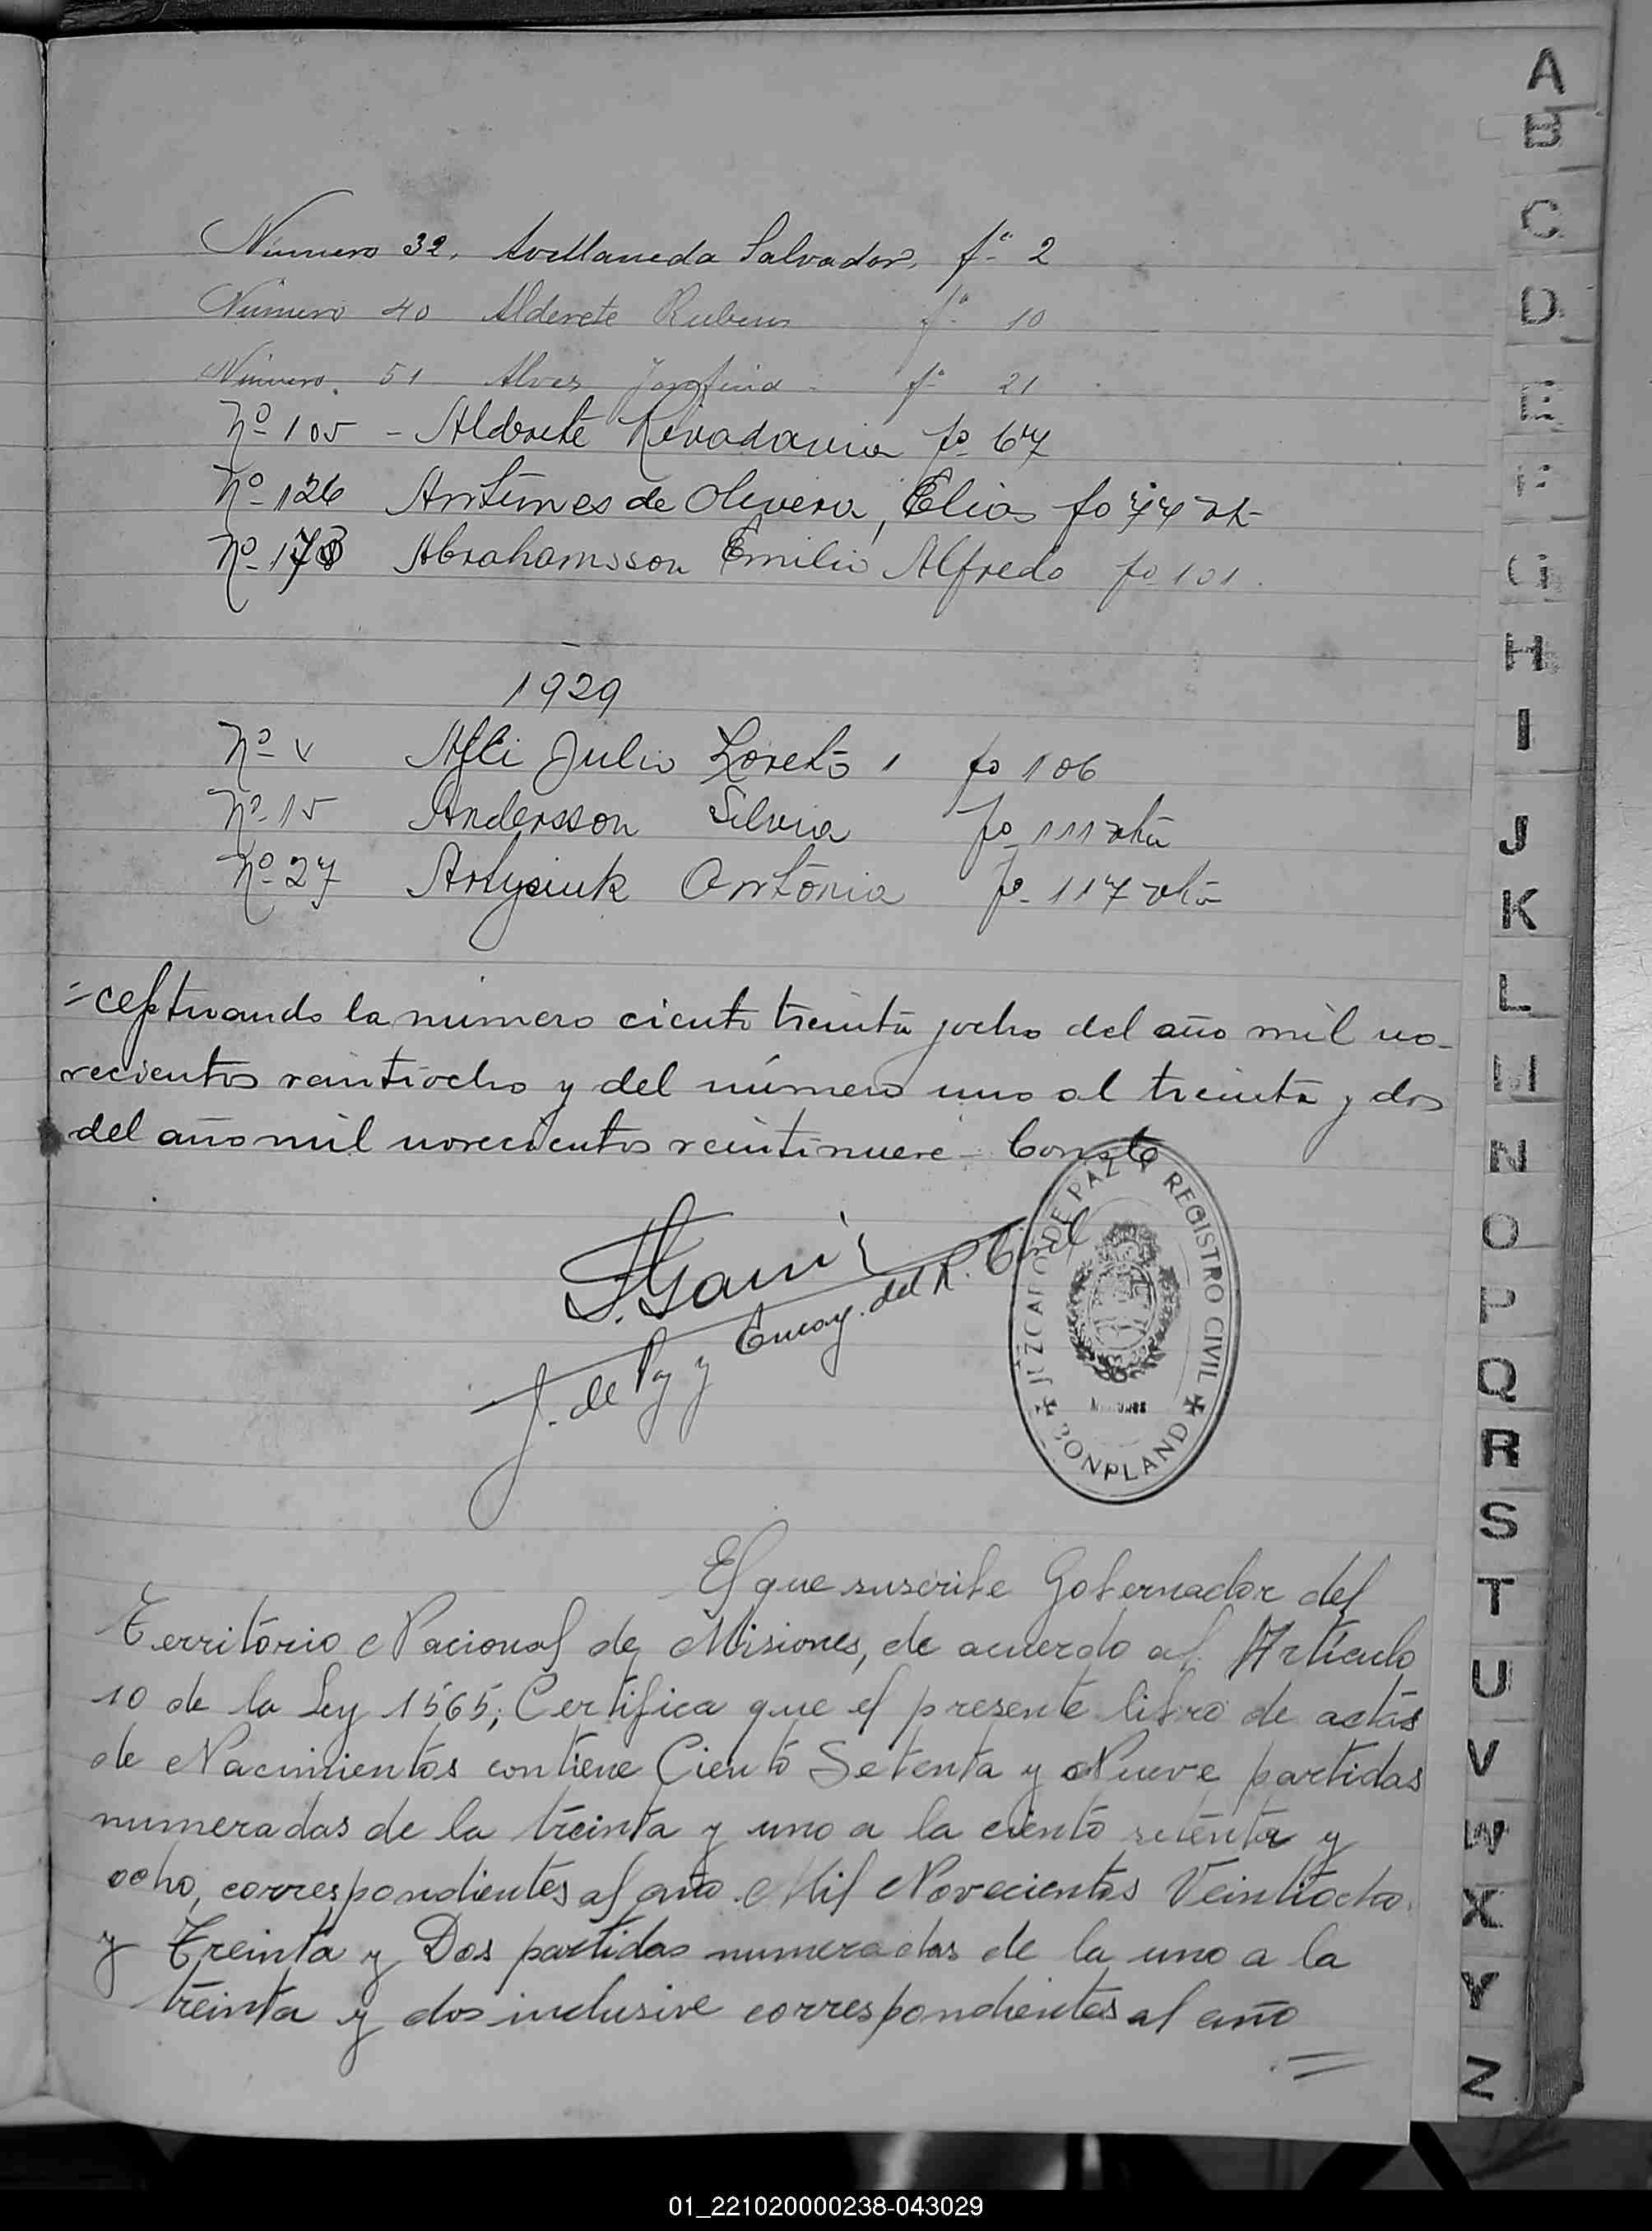 Número 32. Avellaneda Salvador, fº 2
Número 40 Alderete Rubens fº 10
Número. 51 Alves Josefina - fº 21
Nº 105 - Alderete Rivadavia fº 67
Nº 126 Antúnes de Olivera, Elias fo 77 vt
Nº 178 Abrahamsson Emilio Alfredo fo 101.
1929
Nº Julio Loreto fo 106
Nº 15 Andersson Silvia fo 111 vta
Nº 27 Artysiuk Antonia fº 117 vta
=ceptuando la número ciento treinta y ocho del año mil no-
vecientos veintiocho y del número uno al treinta y dos
del año mil novecientos veintinueve - Conste
J. de Paz y Encarg. del R. Civil
JUZGADO DE PAZ Y REGISTRO CIVIL
MISIONES
BONPLAND
El que suscribe Gobernador del
Territorio Nacional de Misiones, de acuerdo al Artículo
10 de la Ley 1565; Certifica que el presente libro de actas
de Nacimientos contiene Ciento Setenta y Nueve partidas
numeradas de la treinta y uno a la ciento setenta y
ocho, correspondientes al año Mil Novecientos Veintiocho
y Treinta y Dos partidas numeradas de la uno a la
treinta y dos inclusive correspondientes al año
=
A
B
C
D
E
F
G
H
I
J
K
L
M
N
O
P
Q
R
S
T
U
V
W
X
Y
Z
01_221020000238-043029